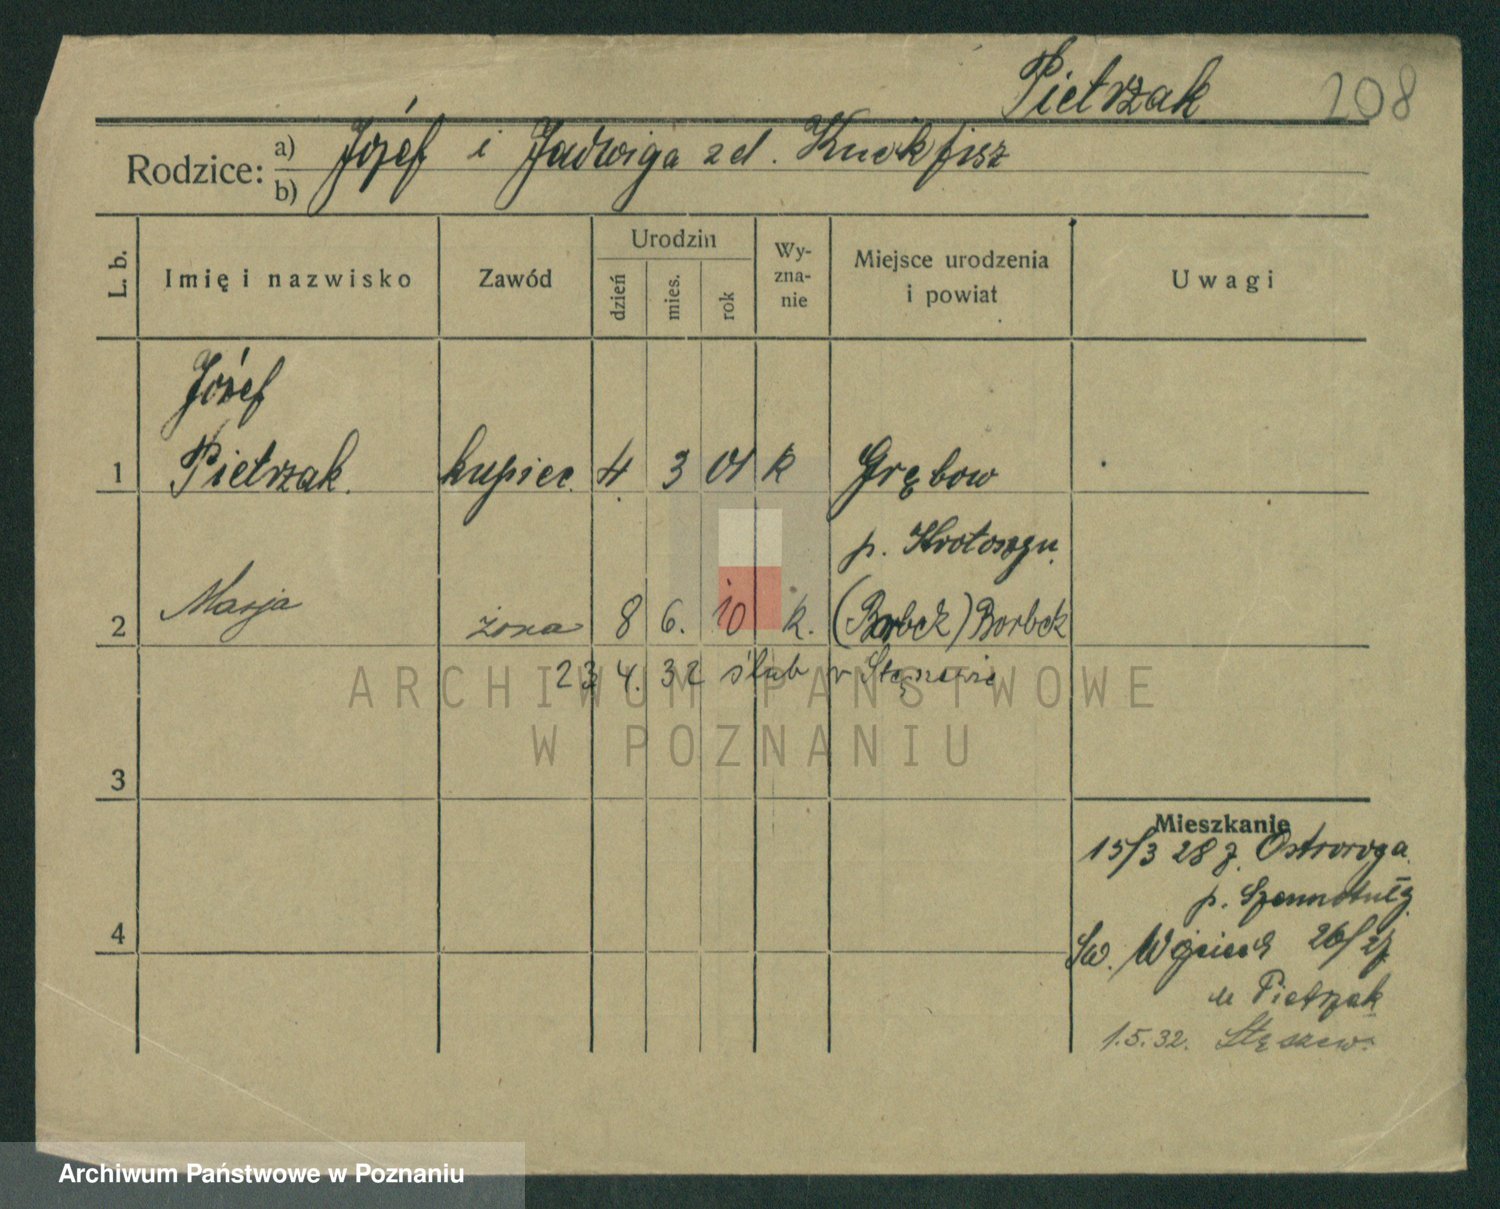 Pietrzak 208
Rodzice: a) Józef i Jadwiga zd.
b)
L. b. Imię i nazwisko Zawód Urodzin dzień mies. rok Wy-zna-nie Miejsce urodzenia i powiat Uwagi
Józef
1 Pietrzak. kupiec 4 3 01 k Grębow
p. Krotoszyn.
2 Marja żona 8 6. 10 k. (Borbek) Borbek
23 4. 32 ślub w Stęszewie
ARCHIWUM PAŃSTWOWE
W POZNANIU
3
Mieszkanie
15/3 28 z. Ostroroga
p. Szamotuły
4
Św. Wojciech 26/27
u Pietrzak
1.5.32. Stęszew.
Archiwum Państwowe w Poznaniu